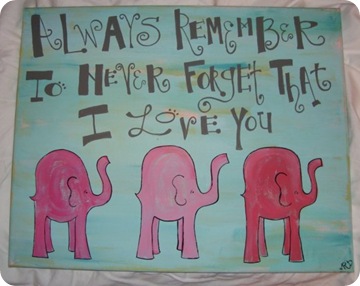 Always Remember
To Never Forget That
I Love You